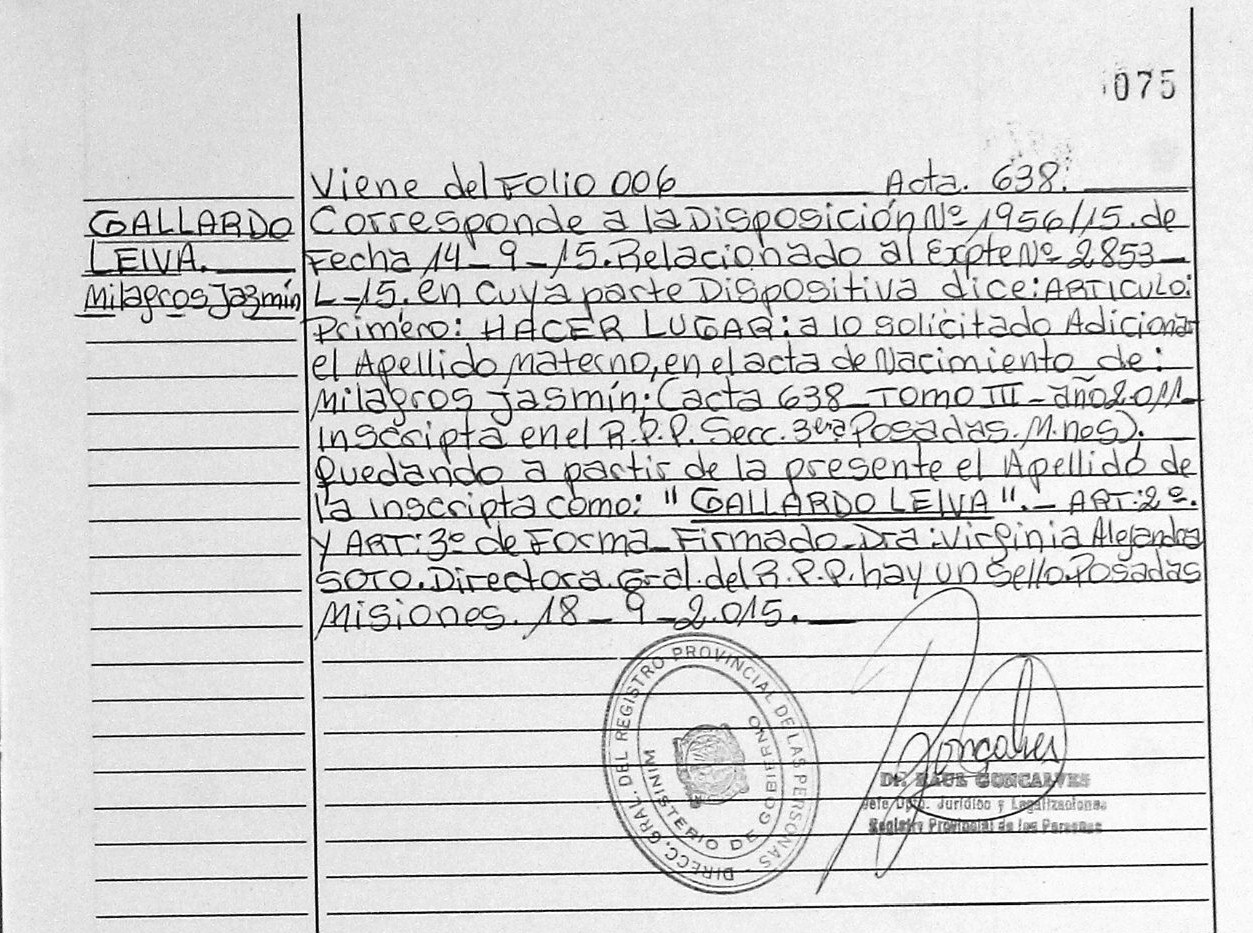 075
Viene del Folio 006 Acta. 638.
GALLARDO
LEIVA.
Milagros Jazmín
Corresponde a la Disposición Nº 1956/15. de
Fecha 14-9-15. Relacionado al Expte Nº 2853-
L-15. en cuya parte Dispositiva dice: ARTICULO:
Primero: HACER LUGAR: a lo solicitado Adicionar
el Apellido Materno, en el acta de Nacimiento de:
Milagros Jasmín: (acta 638 Tomo III - año 2.011-
Inscripta en el R.P.P. Secc. 3era Posadas. M.nes).
Quedando a partir de la presente el Apellido de
la inscripta como: "GALLARDO LEIVA".- ART: 2º.
y ART: 3º de Forma - Firmado - Dra: Virginia Alejandra
SOTO. Directora. Gral. del R.P.P. hay un Sello. Posadas
Misiones. 18-9-2.015.
DIRECC. GRAL. DEL REGISTRO PROVINCIAL DE LAS PERSONAS
MINISTERIO DE GOBIERNO
Goncalves
DR. RAUL GONCALVES
Jefe Dpto. Jurídico y Legalizaciones
Registro Provincial de las Personas